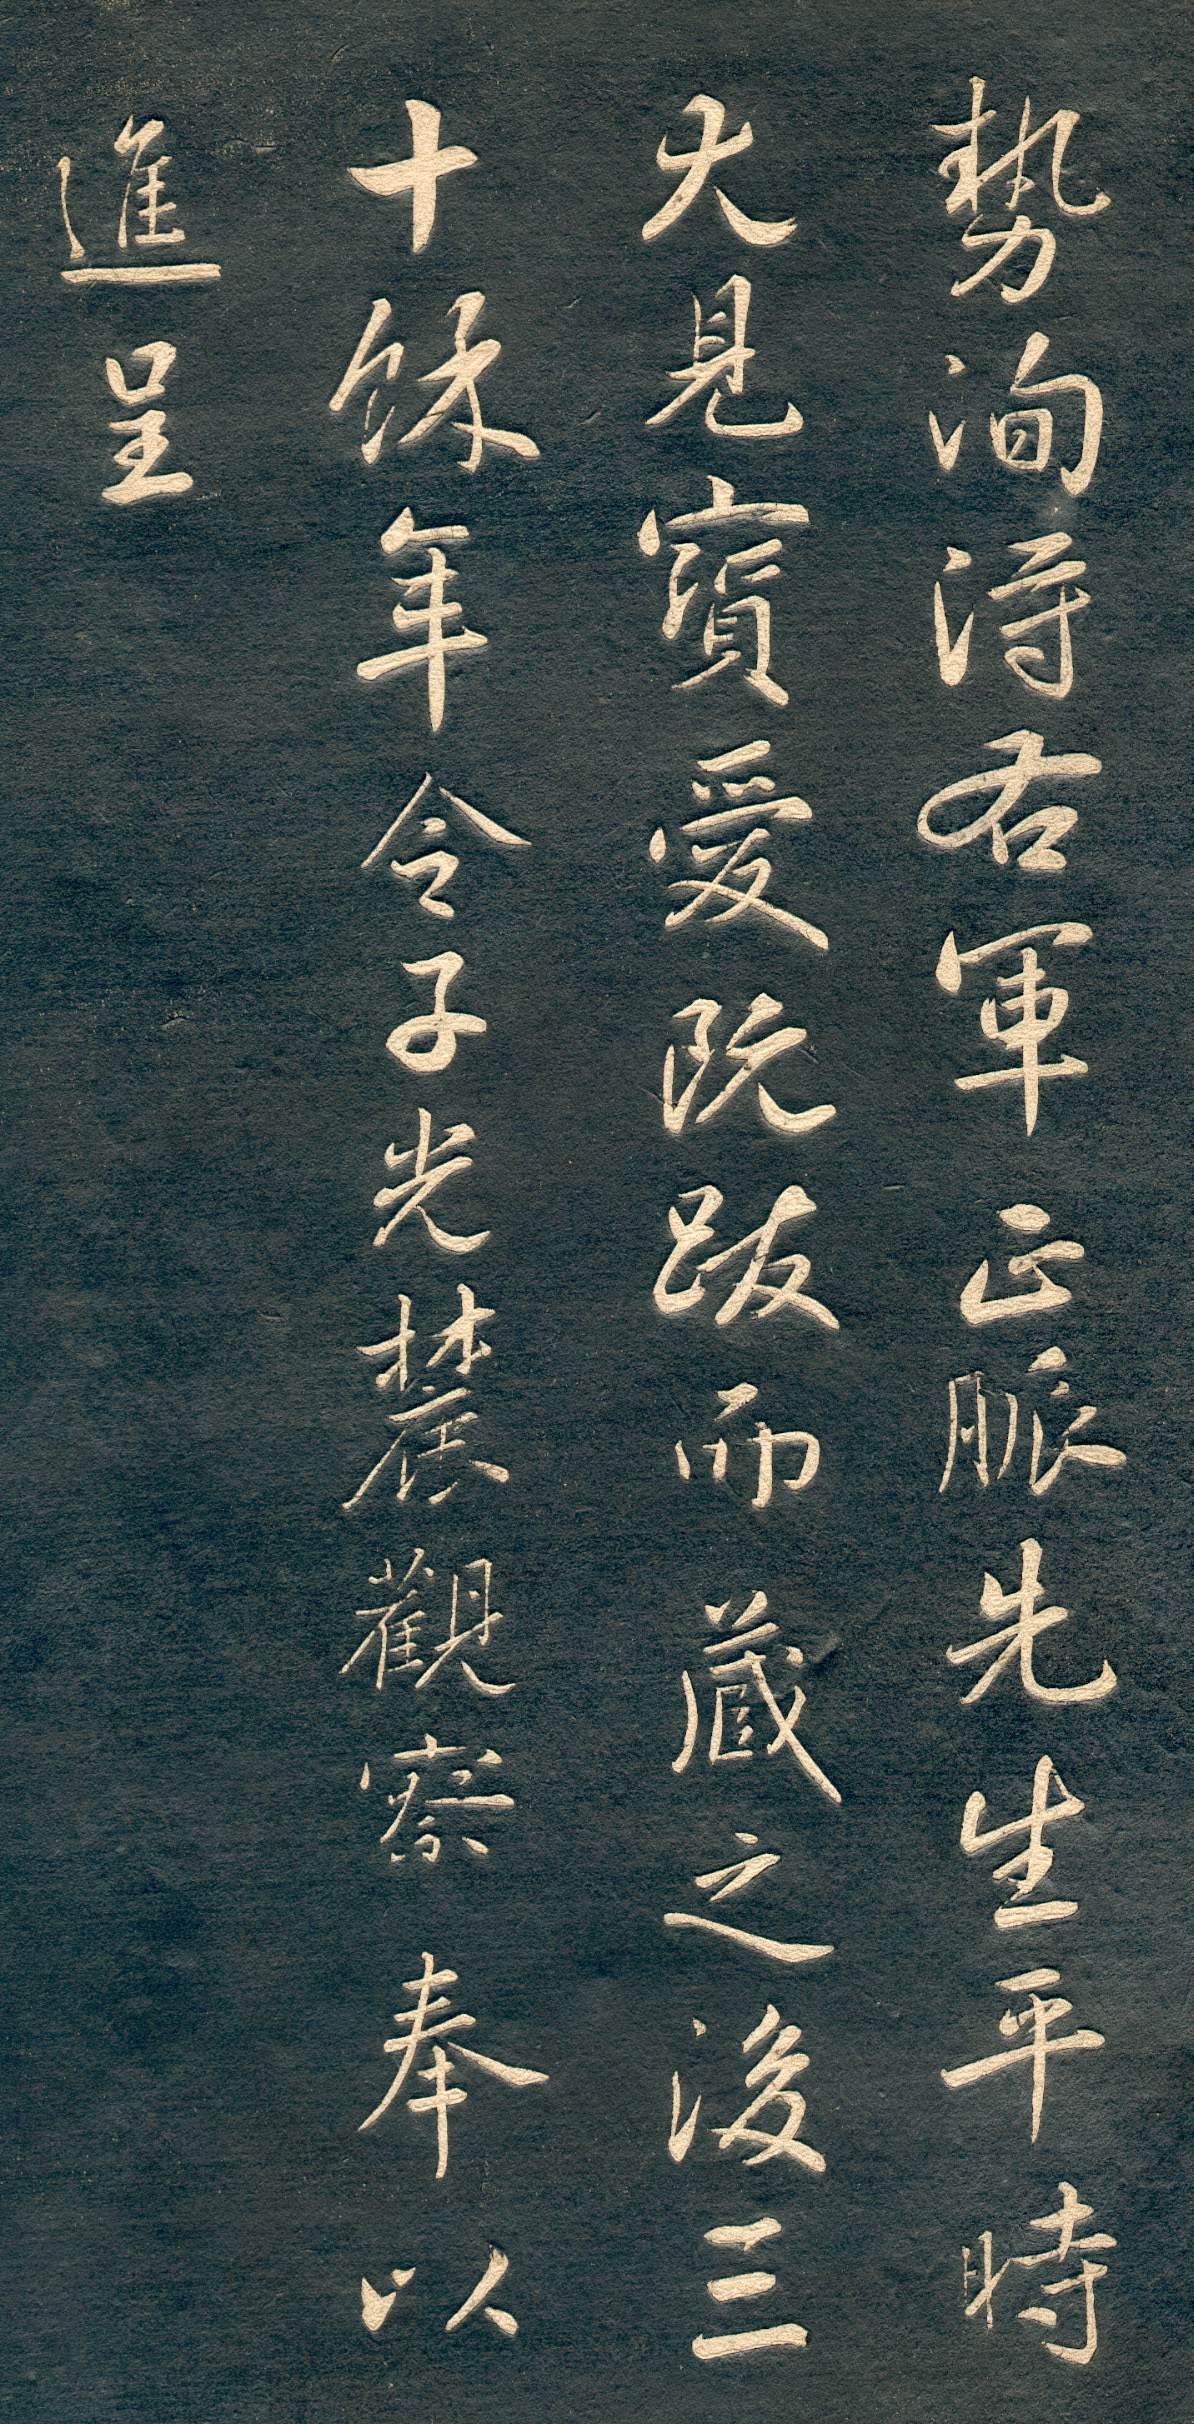 勢洵得右軍正脈先生平時
大見寶愛既跋而藏之後三
十餘年令子光襛觀察奉以
進呈